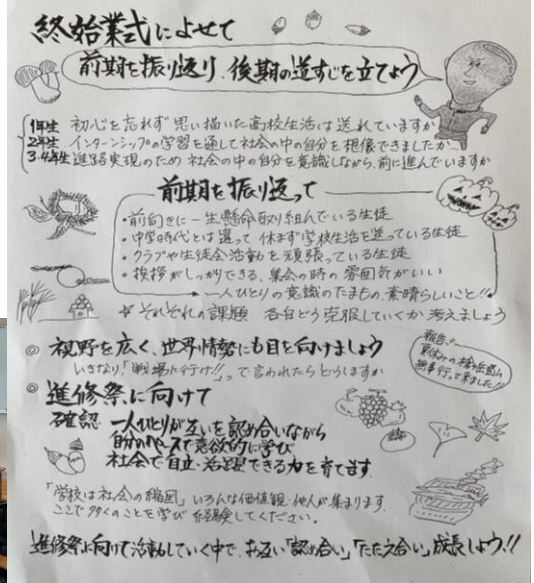 終始業式によせて
前期を振り返り、後期の道すじを立てよう
1年生 初心を忘れず思い描いた高校生活は送れていますか
2年生 インターンシップの学習を通して社会の中の自分を想像できましたか
3.4年生 進路実現のため 社会の中の自分を意識しながら、前に進んでいますか
前期を振り返って
・前向きに一生懸命取り組んでいる生徒
・中学時代とは違って 休まず学校生活を送っている生徒
・クラブや生徒会活動を頑張っている生徒
・挨拶がしっかりできる、集会の時の雰囲気がいい
一人ひとりの意識のたまもの、素晴らしいこと!!
☆ それぞれの課題 各自どう克服していくか 考えましょう
◎ 視野を広く、世界情勢にも目を向けましょう
いきなり「戦場に行け!!」って言われたらどうしますか
報告…
夏休みの槍ヶ岳登山
無事行って来ました!!
◎ 進修祭に向けて
確認 一人ひとりが互いを認め合いながら
自分のペースで意欲的に学び
社会で自立・活躍できる力を育てます
「学校は社会の縮図」いろんな価値観・他人が集まります
ここで多くのことを学び 経験してください。
進修祭に向けて活動していく中で、お互い「認め合い」「たたえ合い」成長しよう!!